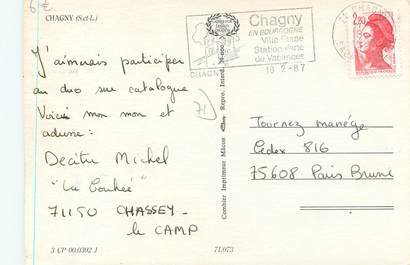 6€
CHAGNY (S.-et-L.)
J'aimerais participer
au duo sur catalogue
Voici mon nom et
adresse :
Decitre Michel
71150 CHASSEY-
le CAMP
3 CP 00.0302 1
71.073
Combier Imprimeur Mâcon
Chagny
EN BOURGOGNE
Ville Etape
Station Verte
de Vacances
18-2-87
CHAGNY
2,20
Tournez manège
Cedex 816
75608 Paris Brune